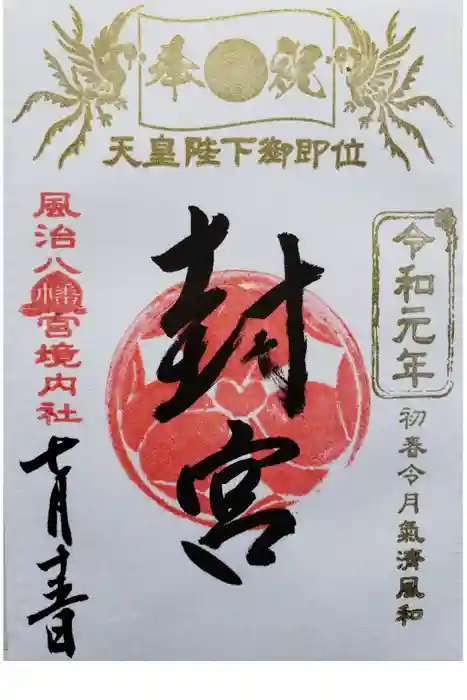 奉祝
天皇陛下御即位
令和元年
初春令月氣清風和
封宮
風治八幡宮境内社
七月十五日